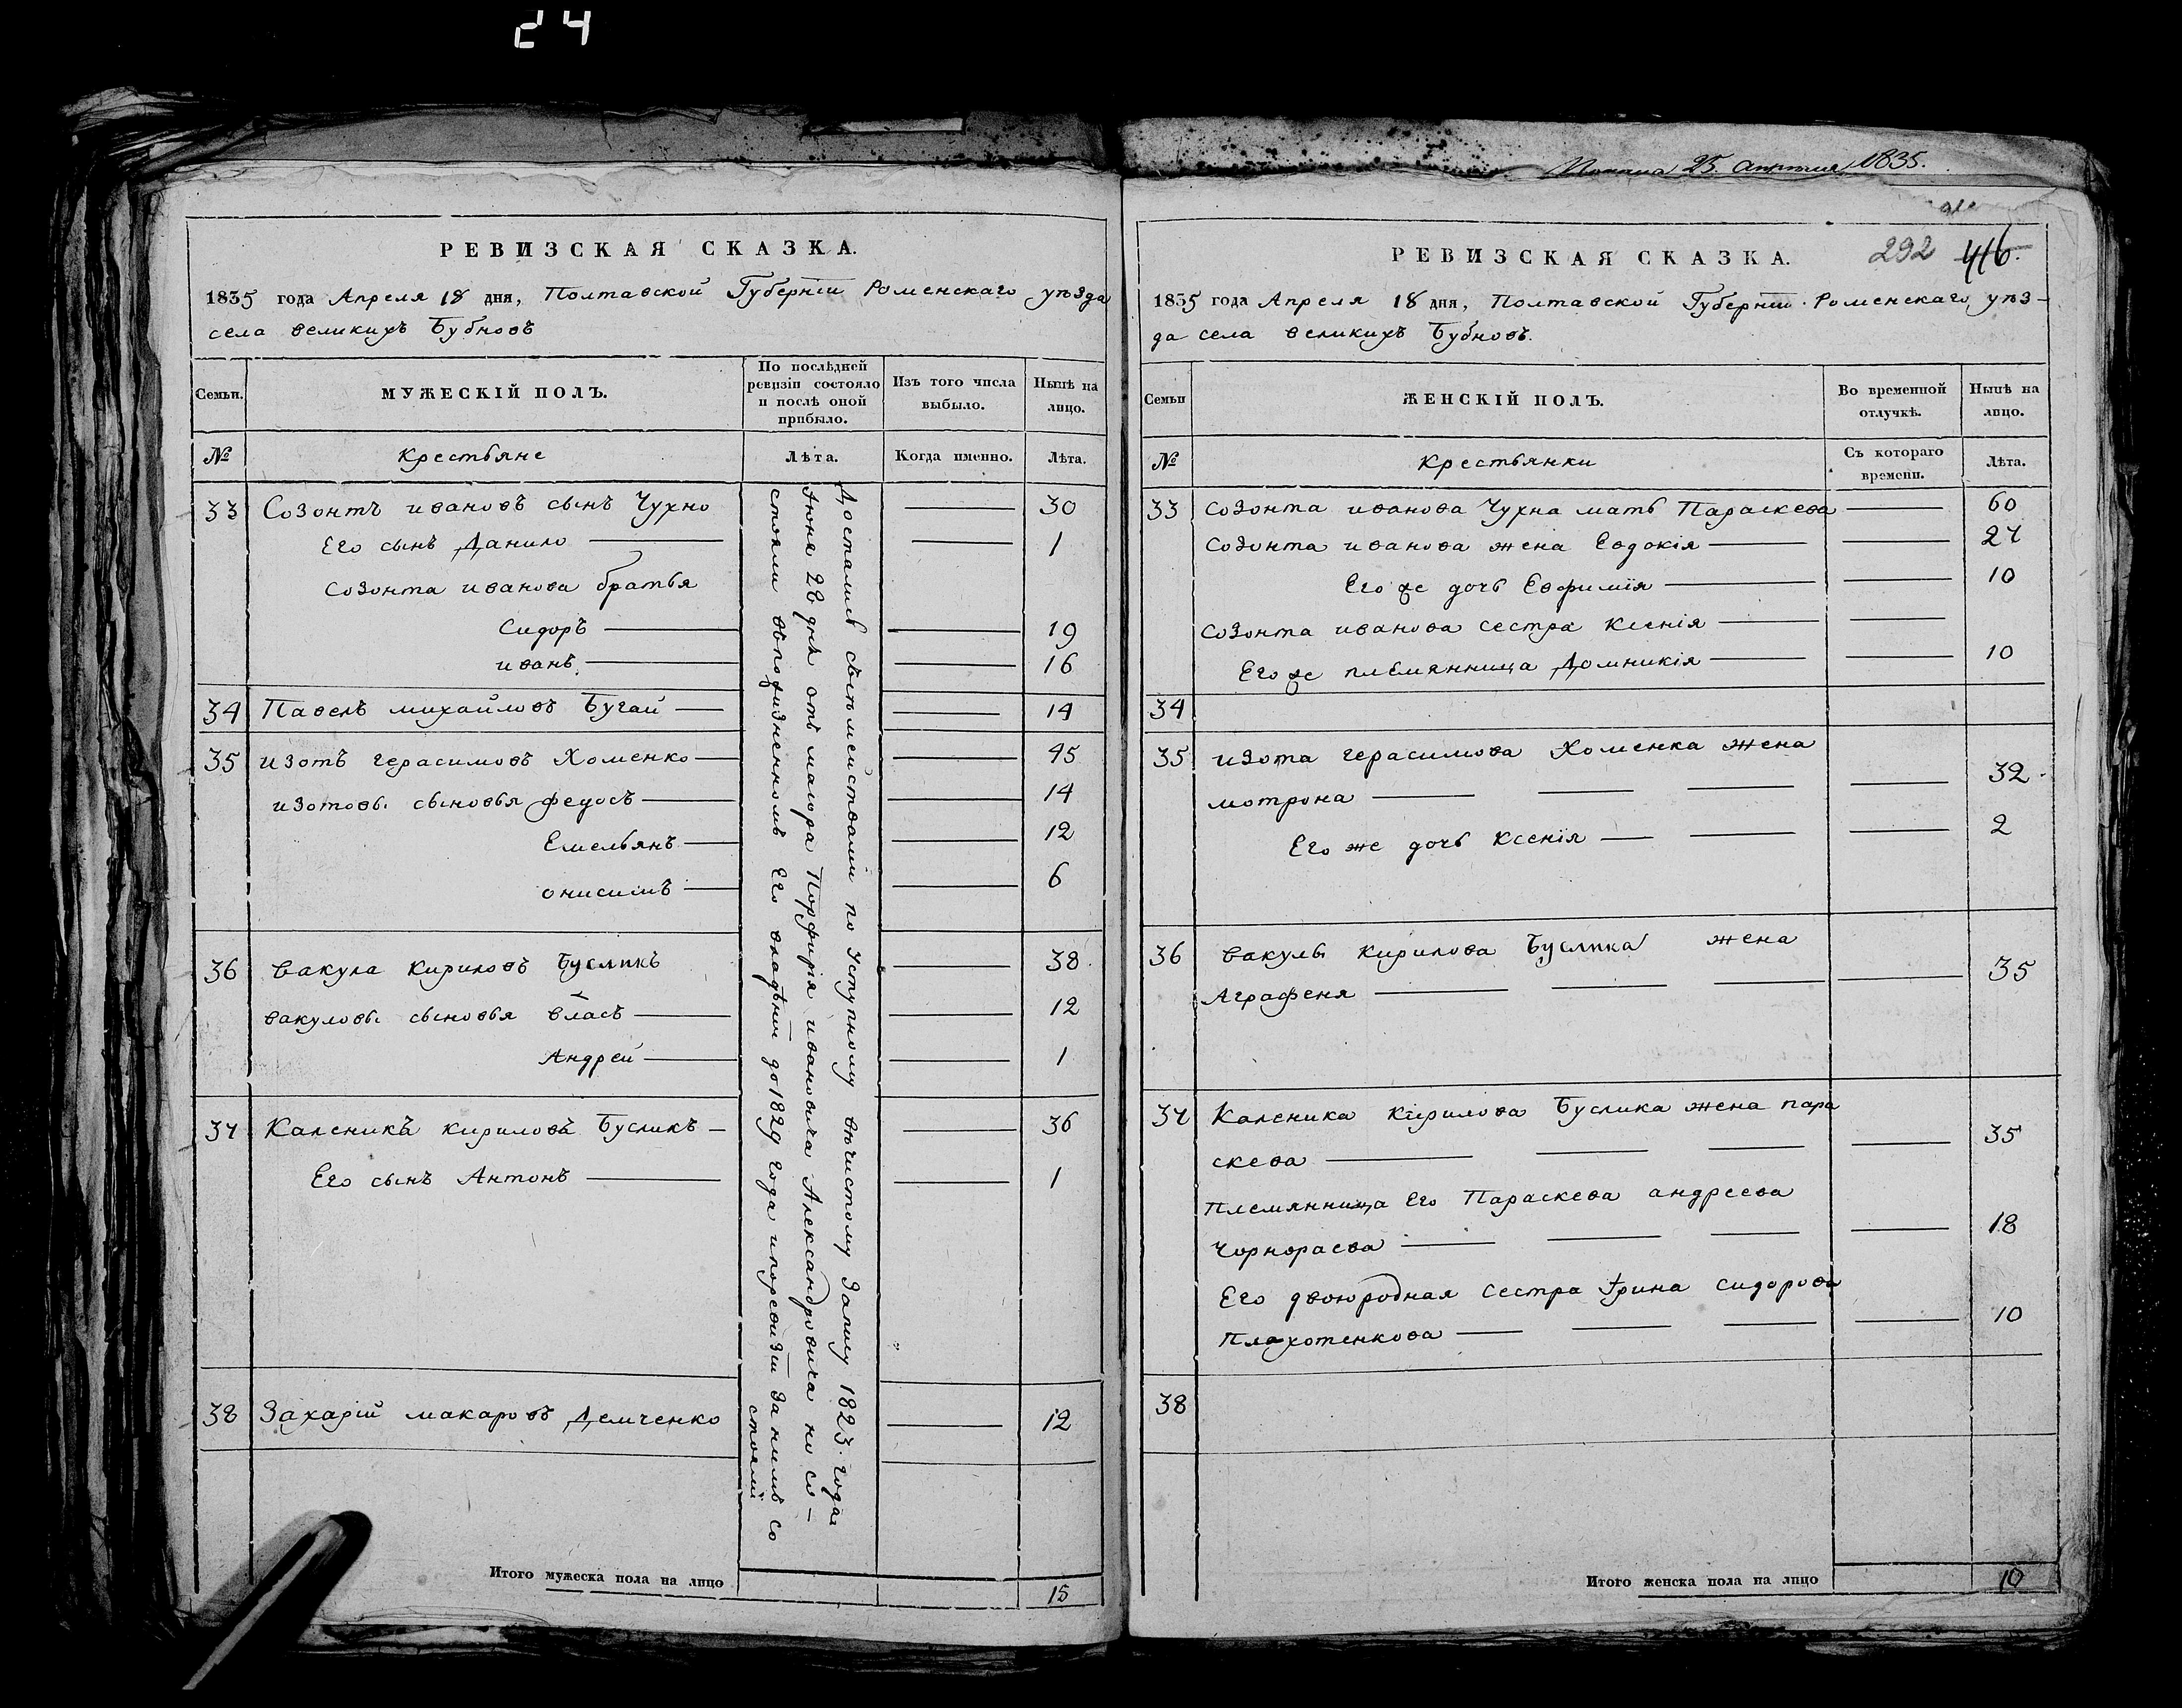 24
РЕВИЗСКАЯ СКАЗКА.
1835 года Апреля 18 дня, Полтавской Губернїи Роменскаго уѣзда
села великихъ Бубновъ
Семьи.
МУЖЕСКІЙ ПОЛЪ.
По послѣдней ревизіи состояло и послѣ оной прибыло.
Изъ того числа выбыло.
Нынѣ на лицо.
№
Крестьяне
Лѣта.
Когда именно.
Лѣта.
33 Созонтъ ивановъ сынъ Чухно 30
Его сынъ Данило 1
Созонта иванова братья
Сидоръ 19
иванъ 16
34 Павелъ михайловъ Бугай 14
35 изотъ герасимовъ Хоменко 45
изотовы сыновья федосъ 14
Емельянъ 12
онисимъ 6
36 вакула кириловъ Бусликъ 38
вакуловы сыновья власъ 12
Андрей 1
37 Каленикъ кириловъ Бусликъ 36
Его сынъ Антонъ 1
38 Захарїй макаровъ Демченко 12
Достались съ семействами по уступному вѣчистому Запису 1823. года
Июня 28 дня отъ маіора Порфирія ивановича Александровича но со-
стояли въ пожизненномъ Его владѣнїи до 1829 года и по ревизїи За нимъ со
стояли
Итого мужеска пола на лицо 15
25. 1835.
РЕВИЗСКАЯ СКАЗКА.
292 416.
1835 года Апреля 18 дня, Полтавской Губернїи Роменскаго уѣз-
да села великихъ Бубновъ.
Семьи
ЖЕНСКІЙ ПОЛЪ.
Во временной отлучкѣ.
Нынѣ на лицо.
№
Крестьянки
Съ котораго времени.
Лѣта.
33 Созонта иванова Чухна мать Параскева 60
Созонта иванова жена Евдокія 27
Его же дочь Евфимія 10
Созонта иванова сестра Ксенія
Его же племянница Домникія 10
34
35 изота герасимова Хоменка жена
мотрона 32
Его же дочь Ксенія 2
36 вакулы кирилова Буслика жена
Аграфеня 35
37 Каленика кирилова Буслика жена пара
скева 35
Племянница Его Параскева андреева
Чорнораева 18
Его двоюродная сестра Ирина сидорова
Плахотенкова 10
38
Итого женска пола на лицо 10